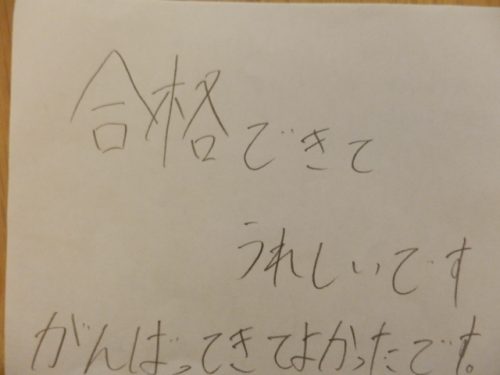 合格できて
うれしいです
がんばってきてよかったです。